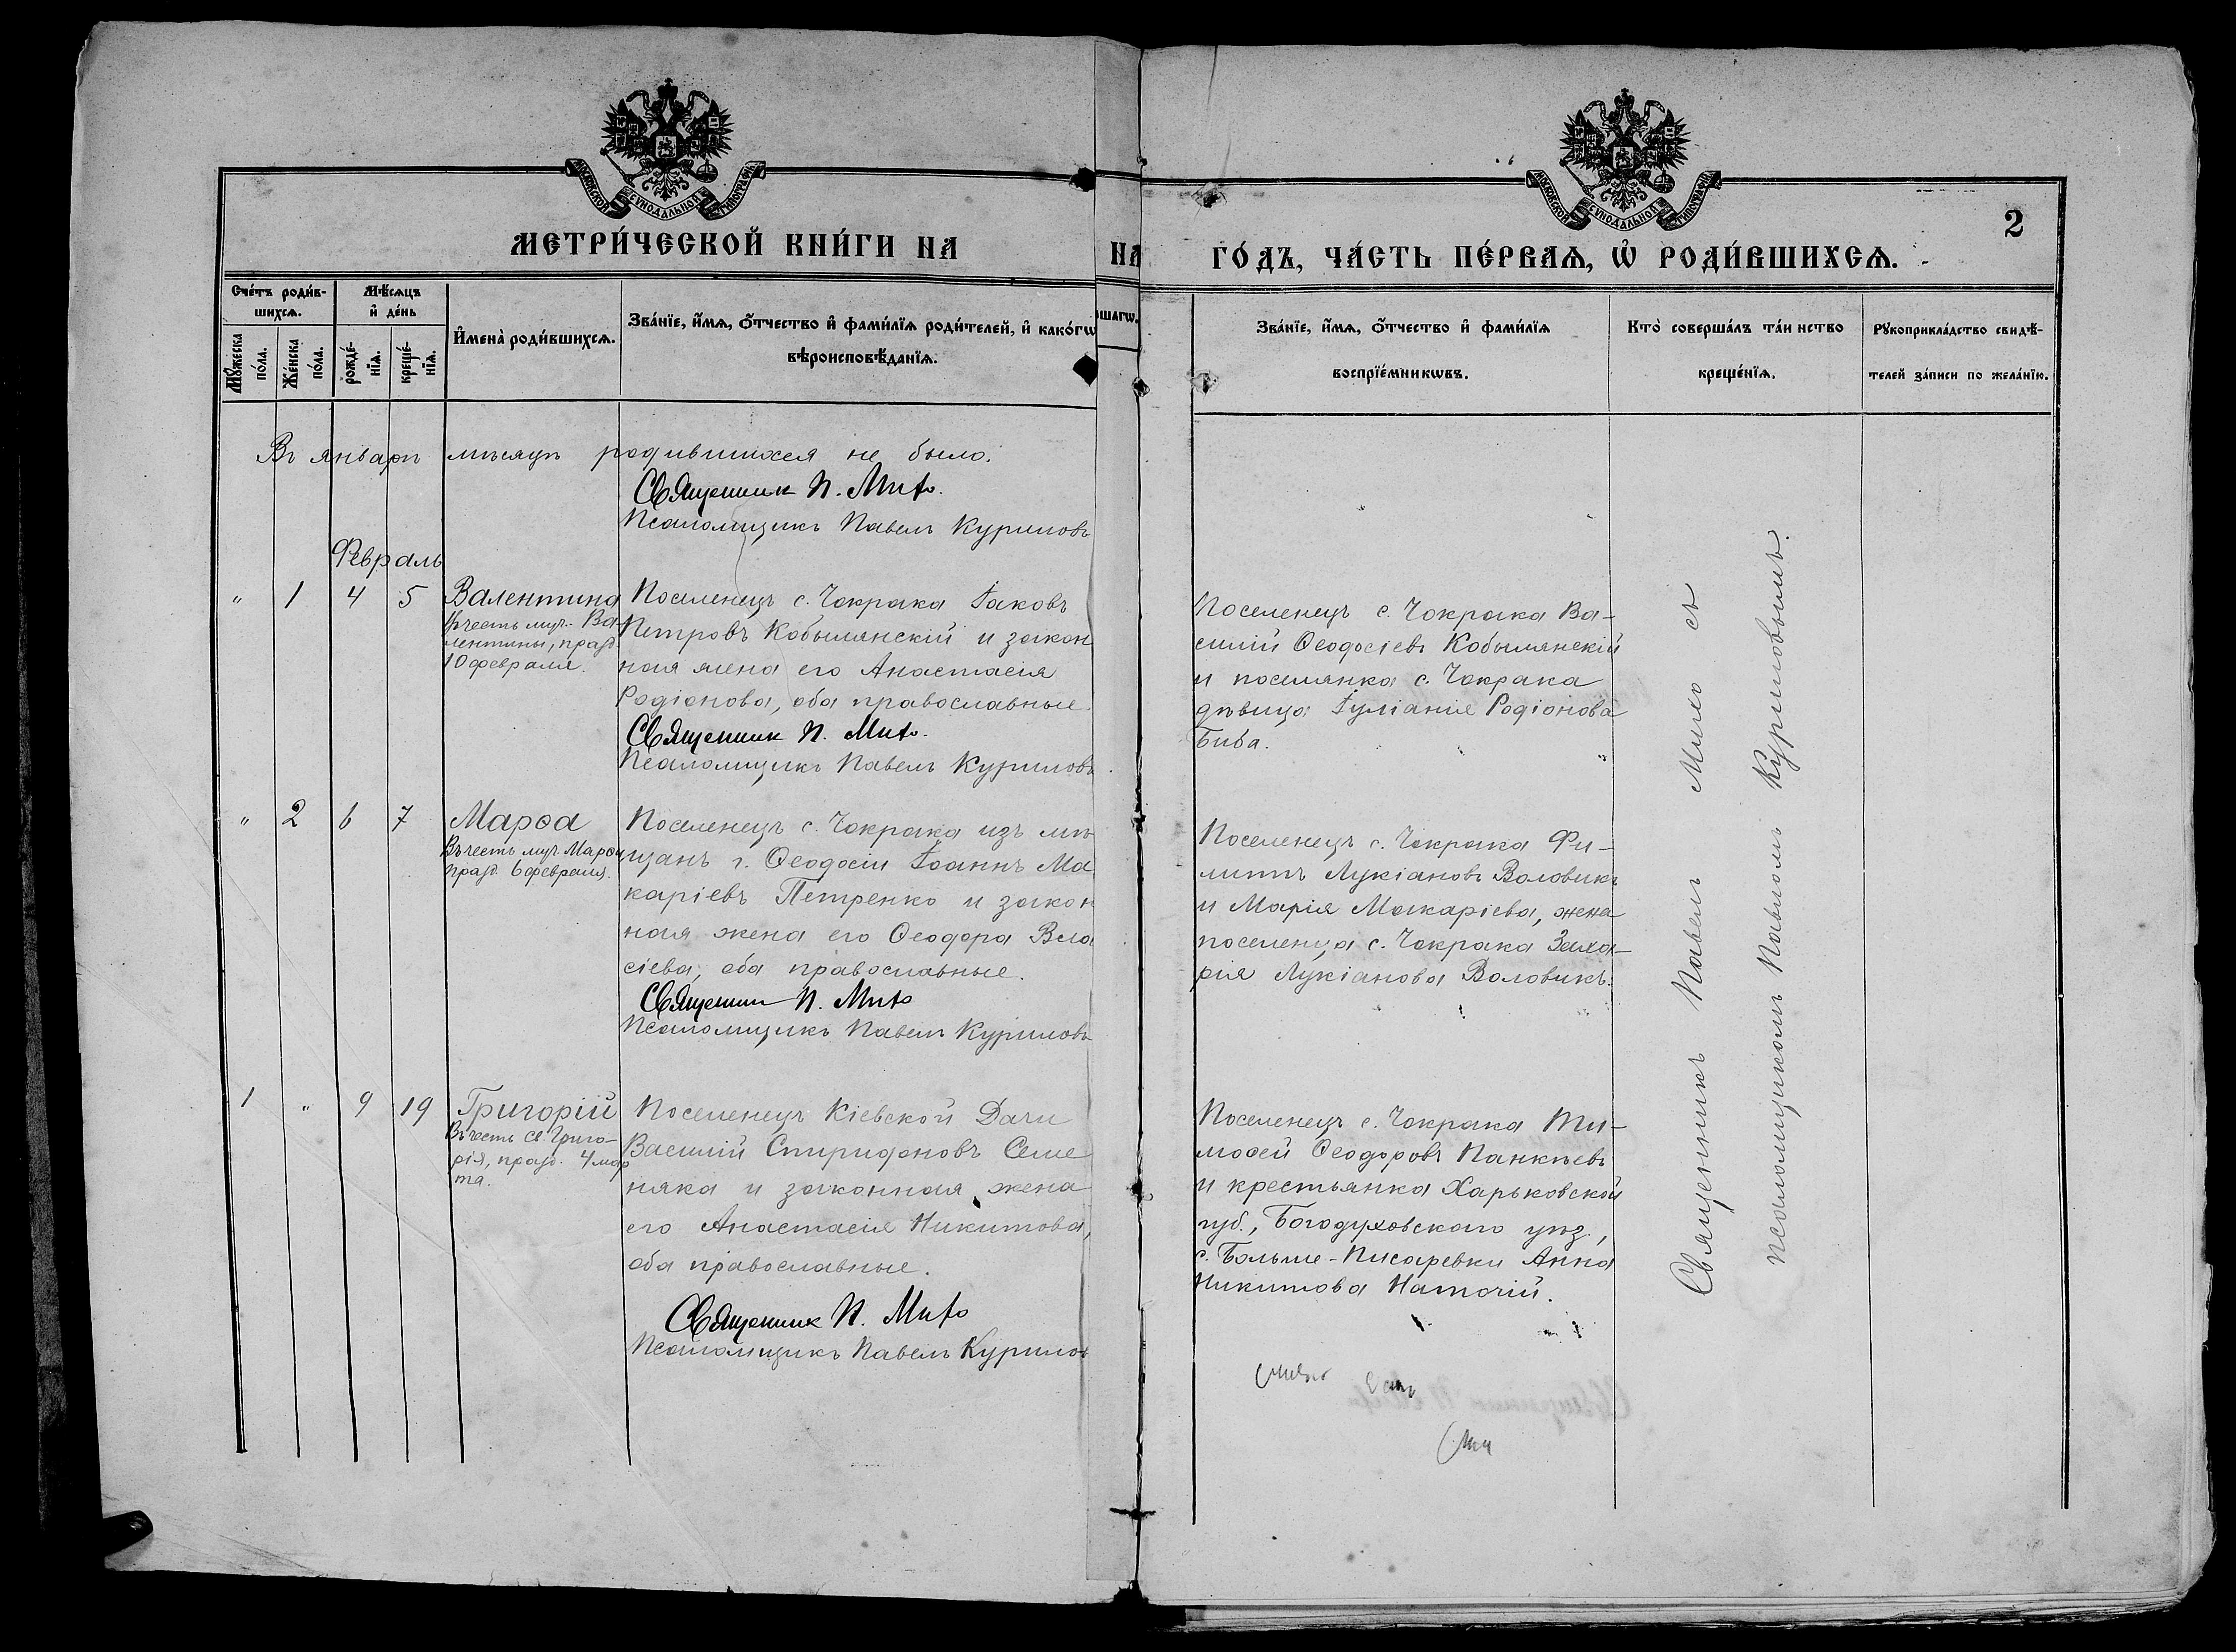 МОСКОВСКОЙ СѴНОДАЛЬНОЙ ТИПОГРАФІИ
МЕТРИ́ЧЕСКОЙ КНИ́ГИ НА
Сче́тъ роди́в-
шихсѧ.
Мѣ́сѧцъ
и҆ де́нь
Мꙋ́жеска
по́ла.
Же́нска
по́ла.
рожде́-
нїѧ.
креще́-
нїѧ.
И҆мена̀ роди́вшихсѧ.
Зва́нїе, и҆́мѧ, ѻ҆́тчество и҆ фами́лїѧ роди́телей, и҆ како́гѡ
вѣроисповѣ́данїѧ.
Въ январѣ мѣсяцѣ родившихся не было.
Священник П. Михо.
Псаломщикъ Павелъ Куриловъ
Февраль
" 1 4 5 Валентина
Въ честь муч. Ва-
лентины, празд.
10 февраля.
Поселенецъ с. Чокрака Іаковъ
Петровъ Кобылянскій и закон
ная жена его Анастасія
Родіонова, оба православные.
Священник П. Михо.
Псаломщикъ Павелъ Куриловъ
" 2 6 7 Марѳа
Въ честь муч. Марѳы,
празд. 6 февраля.
Поселенецъ с. Чокрака изъ мѣ
щанъ г. Ѳеодосіи Іоаннъ Ма
каріевъ Петренко и закон
ная жена его Ѳеодора Вла
сіева, оба православные.
Священник П. Михо
Псаломщикъ Павелъ Куриловъ
1 " 9 19 Григорій
Въ честь св. Григо-
рія, празд. 4 мар
та.
Поселенецъ Кіевской Дачи
Василій Спиридоновъ Семе
няка и законная жена
его Анастасія Никитова,
оба православные.
Священник П. Михо
Псаломщикъ Павелъ Курилов
НА
шагѡ.
МОСКОВСКОЙ СѴНОДАЛЬНОЙ ТИПОГРАФІИ
2
ГО́ДЪ, ЧА́СТЬ ПЕ́РВАѦ, Ѡ҆ РОДИ́ВШИХСѦ.
Зва́нїе, и҆́мѧ, ѻ҆́тчество и҆ фами́лїѧ
воспрїе́мникѡвъ.
Кто̀ соверша́лъ та́инство
креще́нїѧ.
Рꙋкоприкла́дство свидѣ́-
телей за́писи по жела́нїю.
Поселенецъ с. Чокрака Ва-
силій Ѳеодосіевъ Кобылянскій
и поселянка с. Чокрака
дѣвица Іуліанія Родіонова
Биба.
Поселенецъ с. Чокрака Фи-
липпъ Лукіановъ Воловикъ
и Марія Макаріева, жена
поселенца с. Чокрака Заха-
рія Лукіанова Воловикъ.
Поселенецъ с. Чокрака Ти-
моѳей Ѳеодоровъ Панкѣевъ
и крестьянка Харьковской
губ., Богодуховскаго уѣз.,
с. Больше-Писаревки Анна
Никитова Наточій.
Священникъ Павелъ Михо съ
псаломщикомъ Павломъ Куриловымъ.